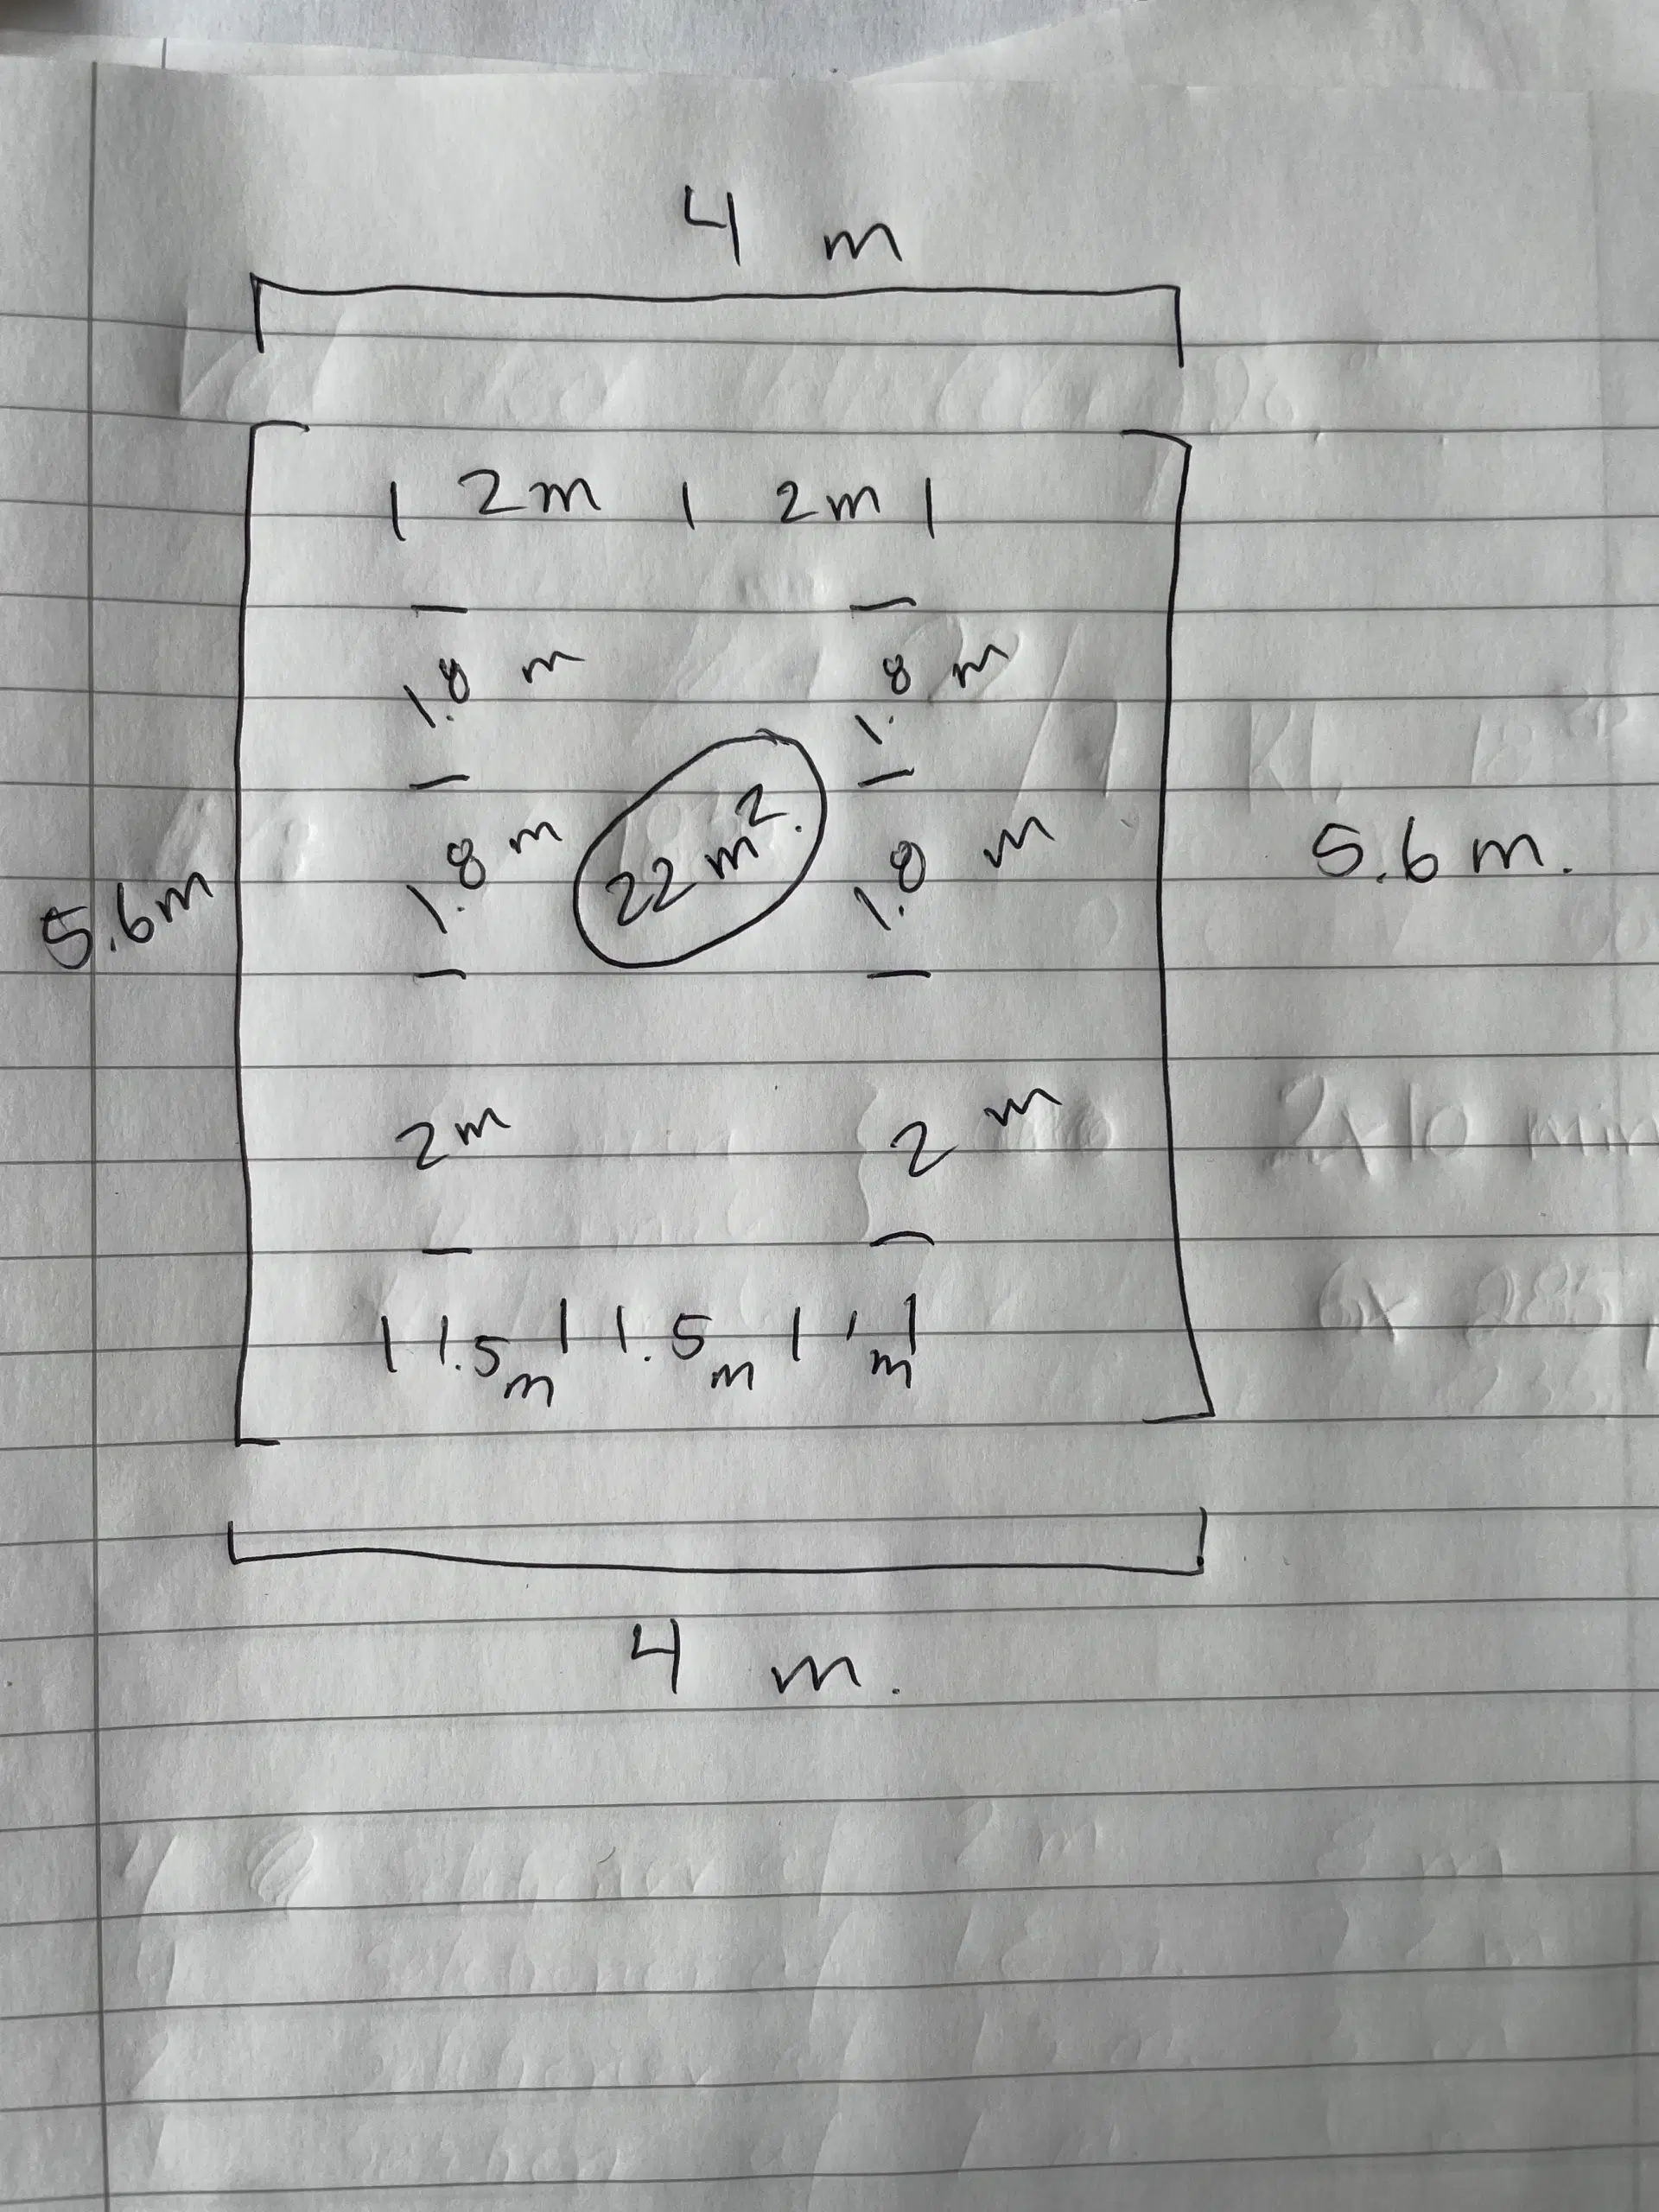 4 m
2m 2m
1.8 m 1.8 m
22 m².
1.8 m 1.8 m
5.6m 5.6 m.
2m 2 m
1.5 m 1.5 m 1 m
4 m.